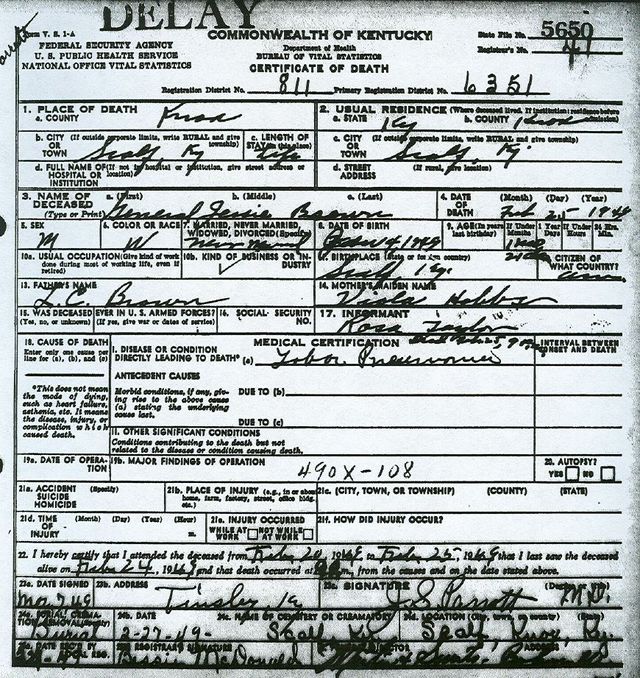 DELAY
Form V. S. 1-A
COMMONWEALTH OF KENTUCKY
State File No. 5650
FEDERAL SECURITY AGENCY
Department of Health
Registrar's No. 41
U. S. PUBLIC HEALTH SERVICE
BUREAU OF VITAL STATISTICS
NATIONAL OFFICE VITAL STATISTICS
CERTIFICATE OF DEATH
Registration District No. 811 Primary Registration District No. 6351
1. PLACE OF DEATH
a. COUNTY Knox
2. USUAL RESIDENCE (Where deceased lived. If institution: residence before admission)
a. STATE Ky b. COUNTY Knox
b. CITY (If outside corporate limits, write RURAL and give township)
OR
TOWN Scalf, Ky
c. LENGTH OF STAY (in this place) Life
c. CITY (If outside corporate limits, write RURAL and give township)
OR
TOWN Scalf, Ky
d. FULL NAME OF (If not in hospital or institution, give street address or location)
HOSPITAL OR
INSTITUTION
d. STREET (If rural, give location)
ADDRESS
3. NAME OF DECEASED (Type or Print)
a. (First) b. (Middle) c. (Last)
General Jessie Brown
4. DATE OF DEATH (Month) (Day) (Year)
Feb 25 1949
5. SEX M
6. COLOR OR RACE W
7. MARRIED, NEVER MARRIED, WIDOWED, DIVORCED (Specify)
Never Married
8. DATE OF BIRTH
9. AGE (In years last birthday) If Under 1 Year Months Days If Under 24 Hrs. Hours Min.
10a. USUAL OCCUPATION (Give kind of work done during most of working life, even if retired)
10b. KIND OF BUSINESS OR INDUSTRY
11. BIRTHPLACE (State or foreign country)
Scalf Ky.
12. CITIZEN OF WHAT COUNTRY?
13. FATHER'S NAME
L. C. Brown
14. MOTHER'S MAIDEN NAME
Viola Hobbs
15. WAS DECEASED EVER IN U. S. ARMED FORCES? (Yes, no, or unknown) (If yes, give war or dates of service)
16. SOCIAL SECURITY NO.
17. INFORMANT
Rosa Taylor
18. CAUSE OF DEATH
Enter only one cause per line for (a), (b), and (c)
MEDICAL CERTIFICATION
INTERVAL BETWEEN ONSET AND DEATH
I. DISEASE OR CONDITION
DIRECTLY LEADING TO DEATH* (a) Lobar Pneumonia
*This does not mean the mode of dying, such as heart failure, asthenia, etc. It means the disease, injury, or complication which caused death.
ANTECEDENT CAUSES
Morbid conditions, if any, giving rise to the above cause (a) stating the underlying cause last.
DUE TO (b)
DUE TO (c)
II. OTHER SIGNIFICANT CONDITIONS
Conditions contributing to the death but not related to the disease or condition causing death.
19a. DATE OF OPERATION
19b. MAJOR FINDINGS OF OPERATION
490X-108
20. AUTOPSY?
YES NO
21a. ACCIDENT (Specify)
SUICIDE
HOMICIDE
21b. PLACE OF INJURY (e.g., in or about home, farm, factory, street, office bldg. etc.)
21c. (CITY, TOWN, OR TOWNSHIP) (COUNTY) (STATE)
21d. TIME OF INJURY (Month) (Day) (Year) (Hour) m.
21e. INJURY OCCURRED
WHILE AT WORK NOT WHILE AT WORK
21f. HOW DID INJURY OCCUR?
22. I hereby certify that I attended the deceased from Feb. 20, 1949, to Feb. 25, 1949 that I last saw the deceased
alive on Feb. 24, 1949 and that death occurred at m., from the causes and on the date stated above.
23a. DATE SIGNED
Mar 7 49
23b. ADDRESS
Tinsley, Ky
23c. SIGNATURE (Degree or title)
J. S. Parrott M.D.
24a. BURIAL, CREMATION, REMOVAL (Specify)
Burial
24b. DATE
2-27-49-
24c. NAME OF CEMETERY OR CREMATORY
Scalf Ky.
24d. LOCATION (City, town, or county) (State)
Scalf, Knox, Ky.
25a. DATE REC'D BY LOCAL REG.
25b. REGISTRAR'S SIGNATURE
Bessie McDonald